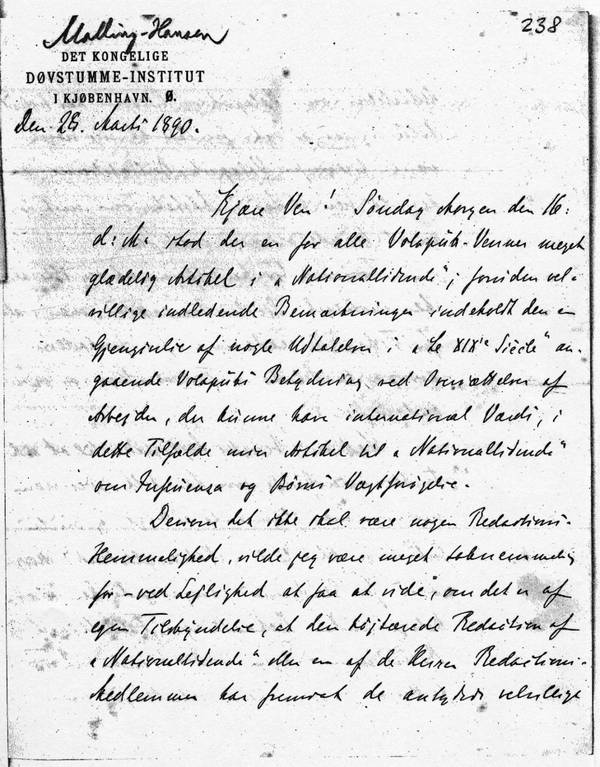 238
Malling-Hansen
DET KONGELIGE
DØVSTUMME-INSTITUT
I KJØBENHAVN. Ø.
Den 28. Marts 1890.
Kjære Ven! Søndag Morgen den 16:
d: M: stod der en for alle Volapük-Venner meget
glædelig Artikel i „Nationaltidende"; foruden vel-
villige indledende Bemærkninger indeholdt den en
Gjengivelse af nogle Udtalelser i „Le XIXe Siècle" an-
gaaende Volapüks Betydning ved Oversættelsen af
Arbejder, der kunne have international Værdi, i
dette Tilfælde min Artikel til „Nationaltidende"
om Influenza og Børns Vægtforøgelse.
Dersom det ikke skal være nogen Redactions-
Hemmelighed, vilde jeg være meget taknemmelig
for - ved Lejlighed at faa at vide, om det er af
egen Tilskyndelse, at den højtærede Redaction af
„Nationaltidende" eller en af de Herrer Redactions-
Medlemmer har fremsat de antydede velvillige